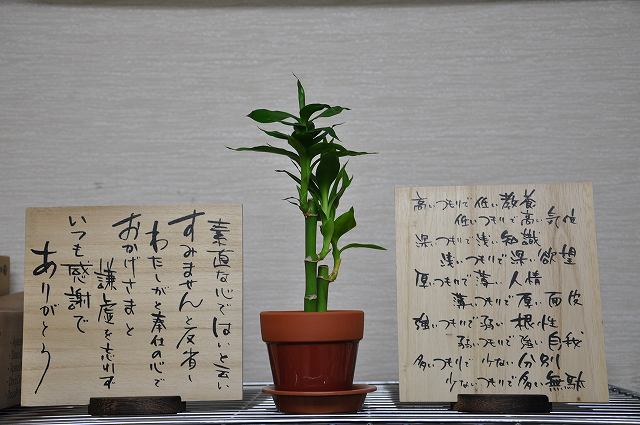 素直な心ではいと云い
すみませんと反省し
わたしがと奉仕の心で
おかげさまと
謙虚を忘れず
いつも感謝で
ありがとう
高いつもりで低い教養
低いつもりで高い気位
深いつもりで浅い知識
浅いつもりで深い欲望
厚いつもりで薄い人情
薄いつもりで厚い面皮
強いつもりで弱い根性
弱いつもりで強い自我
多いつもりで少ない分別
少ないつもりで多い無駄